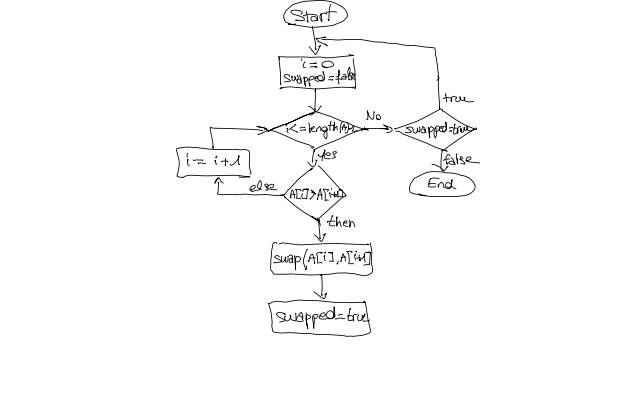 Start
i=0
swapped=false
i<=length(A)
No
swapped=true
true
false
End
yes
i = i+1
else
A[i]>A[i+1]
then
swap(A[i],A[i+1]
swapped=true